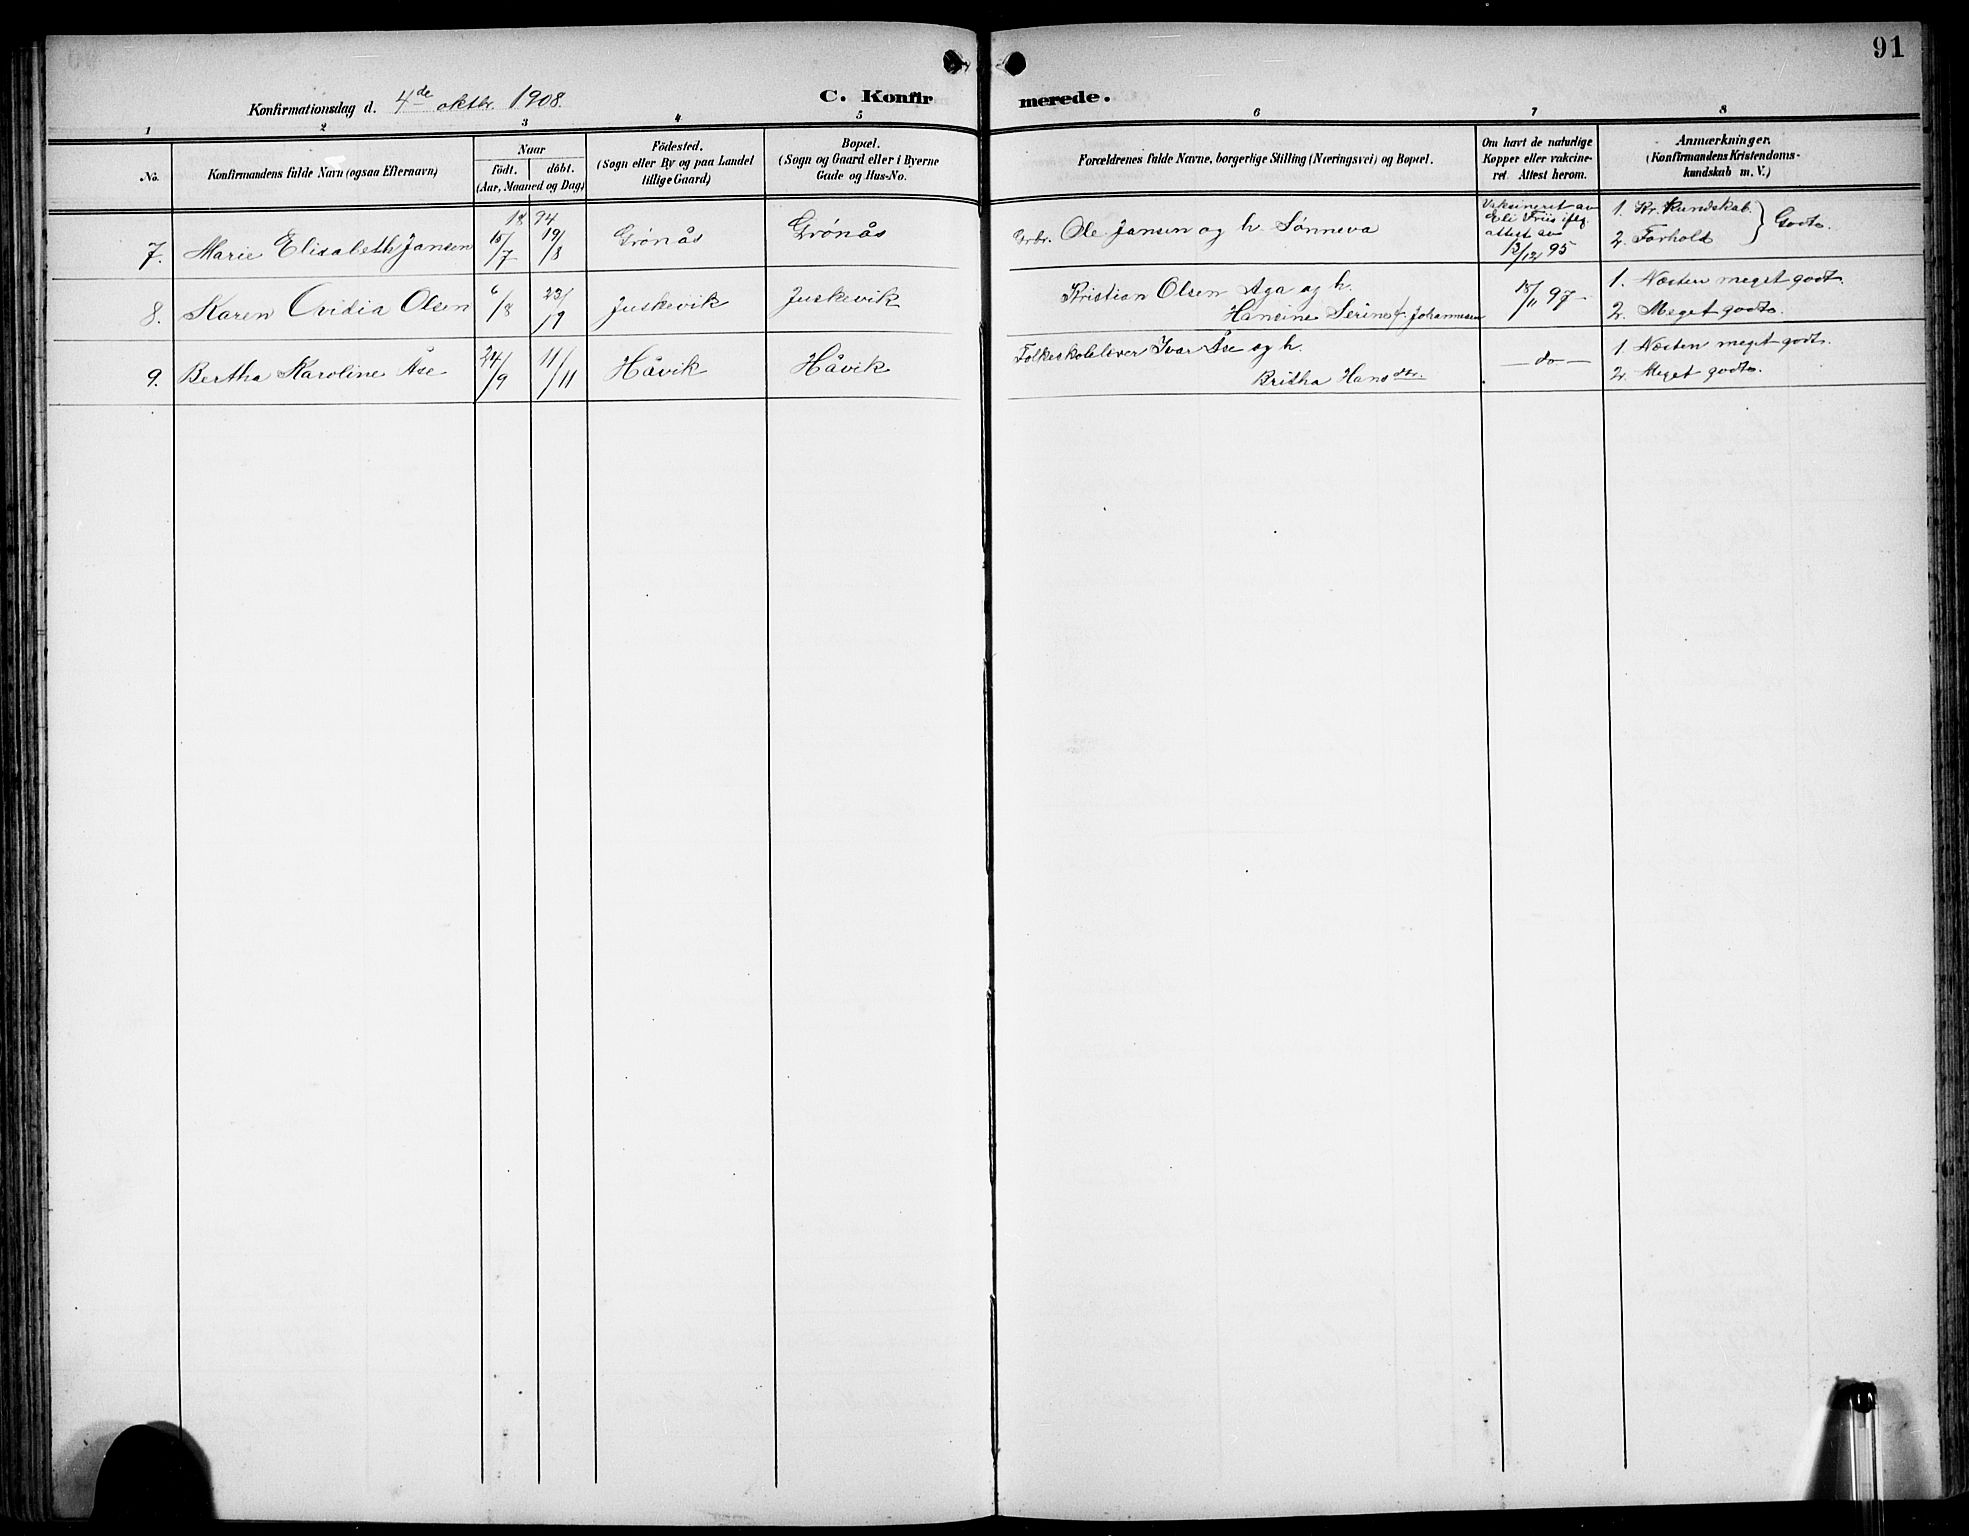 91
Konfirmationsdag d. 4de oktbr. 1908.
C. Konfirmerede.
1 2 3 4 5 6 7 8
No.
Konfirmandens fulde Navn (ogsaa Efternavn)
Naar
födt. döbt.
(Aar, Maaned og Dag)
Födested.
(Sogn eller By og paa Landet
tillige Gaard)
Bopæl.
(Sogn og Gaard eller i Byerne
Gade og Hus-No.
Forældrenes fulde Navne, borgerlige Stilling (Næringsvei) og Bopæl.
Om havt de naturlige
Kopper eller vakcine-
ret. Attest herom.
Anmærkninger.
(Konfirmandens Kristendoms-
kundskab m. V.)
7. Marie Elisabeth Jansen
18 94
15/7 19/8
Grønås
Grønås
Grbr. Ole Jansen og h. Sønneva
Vaksineret av
Eli Friis iflg
attest av
13/12 95
1. Kr. Kundskab.
2. Forhold } Godt.
8. Karen Ovidia Olsen
6/8 23/9
Juskevik
Juskevik
Kristian Olsen Aga og h.
Hansine Serine f. Johannesen
15/11 97
1. Næsten meget godt.
2. Meget godt.
9. Bertha Karoline Åse
24/9 11/11
Håvik
Håvik
Folkeskolelærer Ivar Åse og h.
Britha Hansdtr.
— do —
1. Næsten meget godt.
2. Meget godt.